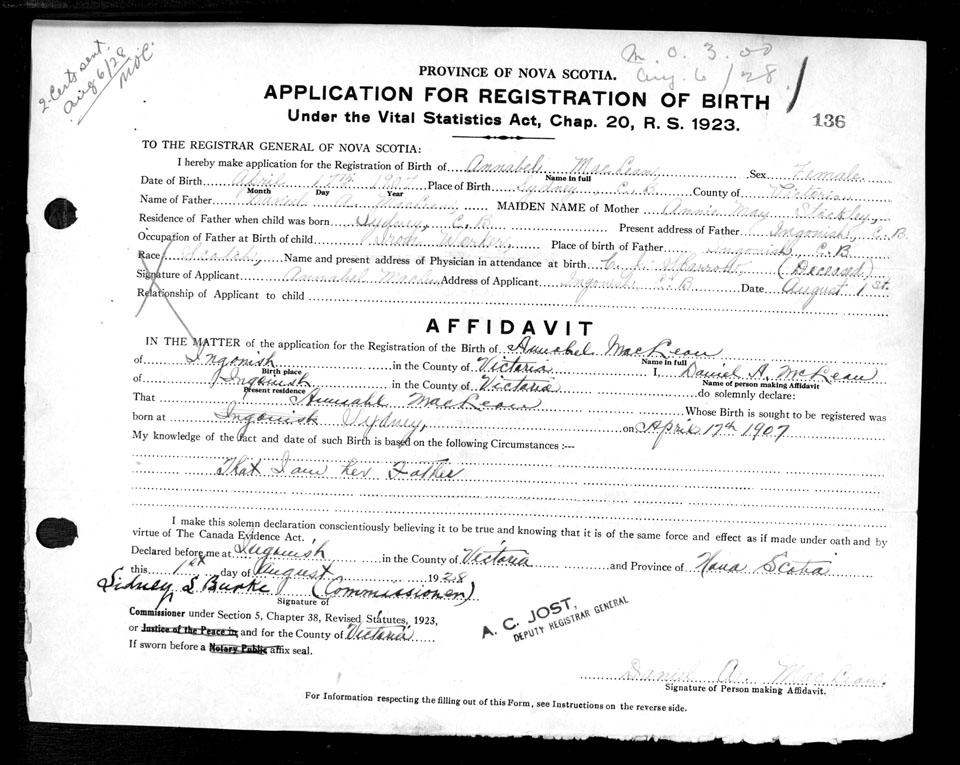 2 Certs sent.
Aug 6/28
MOC.
M.O. 3.00
Aug. 6/28
136
PROVINCE OF NOVA SCOTIA.
APPLICATION FOR REGISTRATION OF BIRTH
Under the Vital Statistics Act, Chap. 20, R. S. 1923.
TO THE REGISTRAR GENERAL OF NOVA SCOTIA:
I hereby make application for the Registration of Birth of Annabel MacLean, Sex Female
Name in full
Date of Birth April 17th 1907 Place of Birth Sydney, C.B. County of Victoria
Month Day Year
Name of Father Daniel A. MacLean, MAIDEN NAME of Mother Annie May
Residence of Father when child was born Sydney, C.B Present address of Father Ingonish, C.B.
Occupation of Father at Birth of child Iron Worker, Place of birth of Father Ingonish, C.B
Race Scotch, Name and present address of Physician in attendance at birth (Deceased)
Signature of Applicant Annabel MacLean Address of Applicant Ingonish C.B Date August 1st.
Relationship of Applicant to child
AFFIDAVIT
IN THE MATTER of the application for the Registration of the Birth of Annabel MacLean
Name in full
of Ingonish in the County of Victoria I, Daniel A. McLean
Birth place Name of person making Affidavit
of Ingonish in the County of Victoria do solemnly declare:
Present residence
That Annabel MacLean Whose Birth is sought to be registered was
born at Ingonish Sydney, on April 17th 1907
My knowledge of the fact and date of such Birth is based on the following Circumstances :—
That I am her Father
I make this solemn declaration conscientiously believing it to be true and knowing that it is of the same force and effect as if made under oath and by
virtue of The Canada Evidence Act.
Declared before me at Ingonish in the County of Victoria and Province of Nova Scotia
this 1st day of August 1928
Sidney S Burke (Commissioner)
Signature of
Commissioner under Section 5, Chapter 38, Revised Statutes, 1923,
or Justice of the Peace in and for the County of Victoria
If sworn before a Notary Public affix seal.
A. C. JOST,
DEPUTY REGISTRAR GENERAL
Daniel A. MacLean.
Signature of Person making Affidavit.
For Information respecting the filling out of this Form, see Instructions on the reverse side.